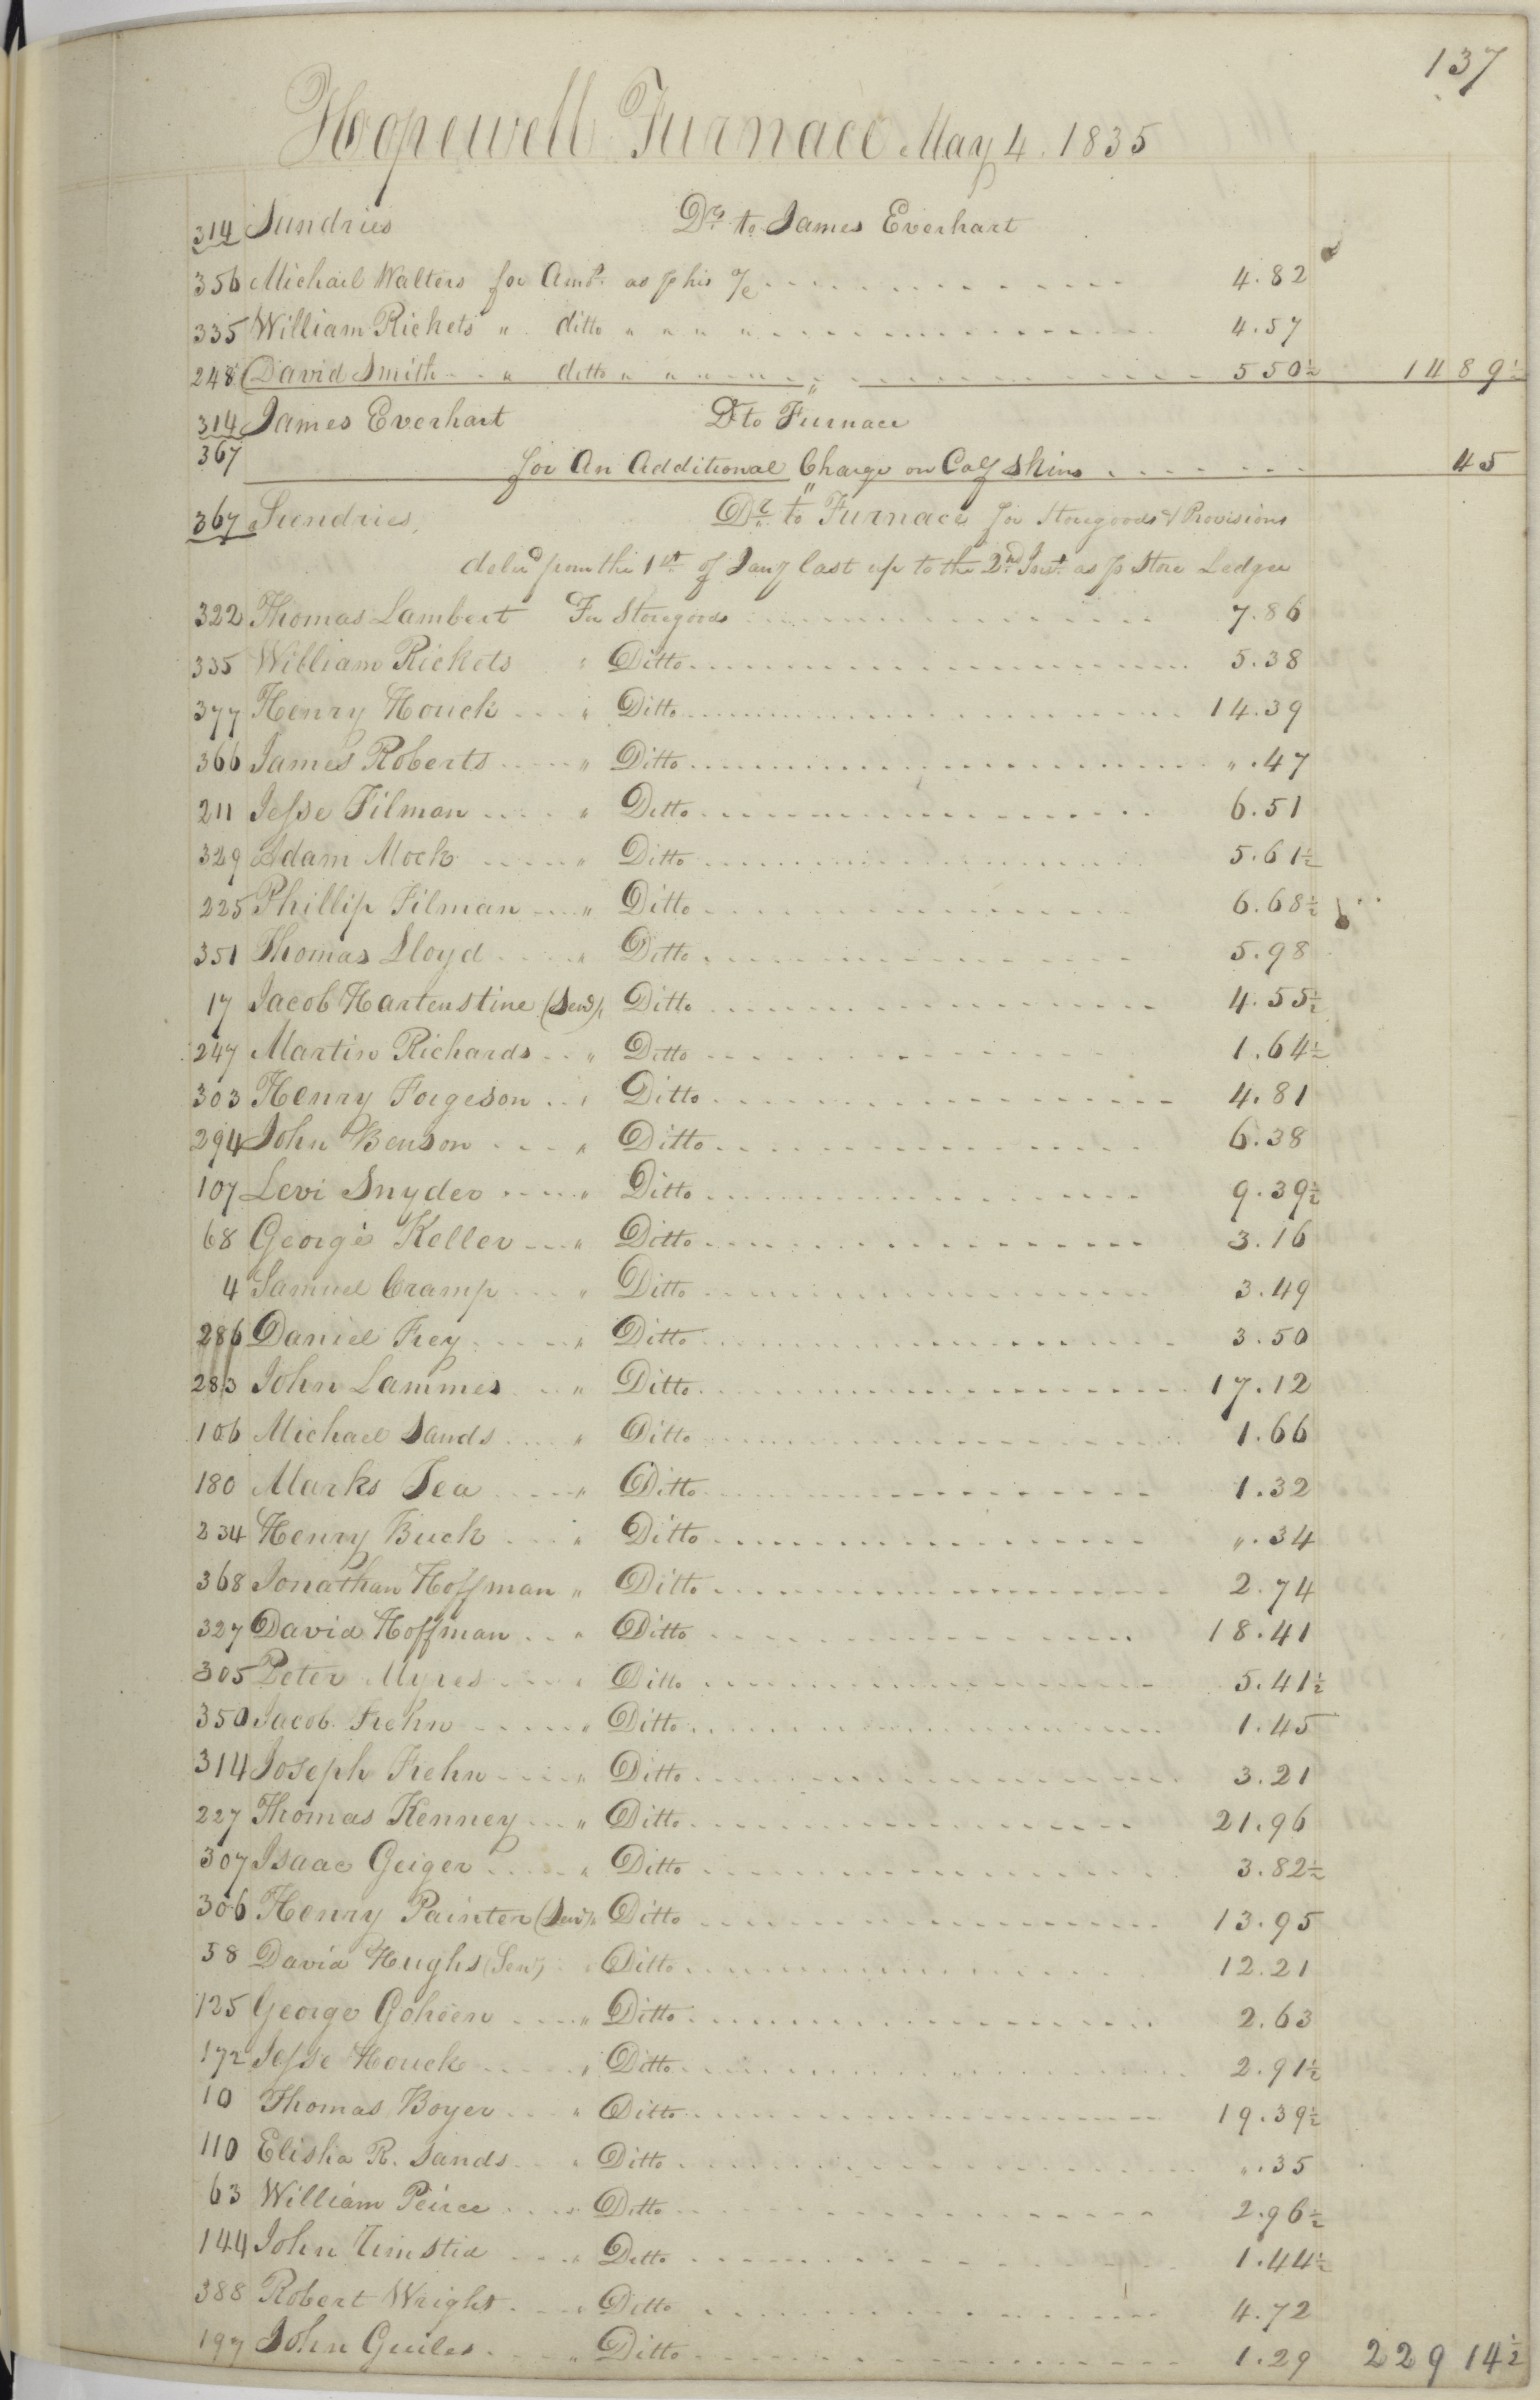 137
Hopewell Furnace May 4. 1835
314 Sundries Drs to James Everhart
356 Michail Walters for Amt. as p his a/c 4.82
335 William Rickets " ditto " " " " 4.57
248 David Smith " ditto " " " " 5 50½ 14 89½
314 James Everhart Dr to Furnace
367 for An Additional Charge on Calf Skins 45
367 Sundries Drs to Furnace for Storegoods & Provisions
delivd from the 1st of Jany last up to the 2nd Inst. as p Store Ledger
322 Thomas Lambert For Storegoods 7.86
335 William Rickets " Ditto 5.38
377 Henry Houck " Ditto 14.39
366 James Roberts " Ditto " .47
211 Jesse Filman " Ditto 6.51
329 Adam Mock " Ditto 5.61½
225 Phillip Filman " Ditto 6.68½
351 Thomas Lloyd " Ditto 5.98
17 Jacob Hartenstine (Senr) " Ditto 4.55½
247 Martin Richards " Ditto 1.64½
303 Henry Forgeson " Ditto 4.81
294 John Benson " Ditto 6.38
107 Levi Snyder " Ditto 9.39½
68 George Keller " Ditto 3.16
4 Samuel Cramp " Ditto 3.49
286 Daniel Frey " Ditto 3.50
283 John Lammes " Ditto 17.12
106 Michael Sands " Ditto 1.66
180 Marks Tea " Ditto 1.32
234 Henry Buck " Ditto " .34
368 Jonathan Hoffman " Ditto 2.74
327 David Hoffman " Ditto 18.41
305 Peter Myres " Ditto 5.41½
350 Jacob Frehn " Ditto 1.45
314 Joseph Frehn " Ditto 3.21
227 Thomas Kenney " Ditto 21.96
307 Isaac Geiger " Ditto 3.82½
306 Henry Painter (Senr) " Ditto 13.95
58 David Hughs (Senr) " Ditto 12.21
125 George Goheen " Ditto 2.63
172 Jesse Houck " Ditto 2.91½
10 Thomas Boyer " Ditto 19.39½
110 Elisha R. Sands " Ditto " .35
63 William Peirce " Ditto 2.96½
144 John Umstid " Ditto 1.44½
388 Robert Wright " Ditto 4.72
197 John Guiles " Ditto 1.29 229 14½